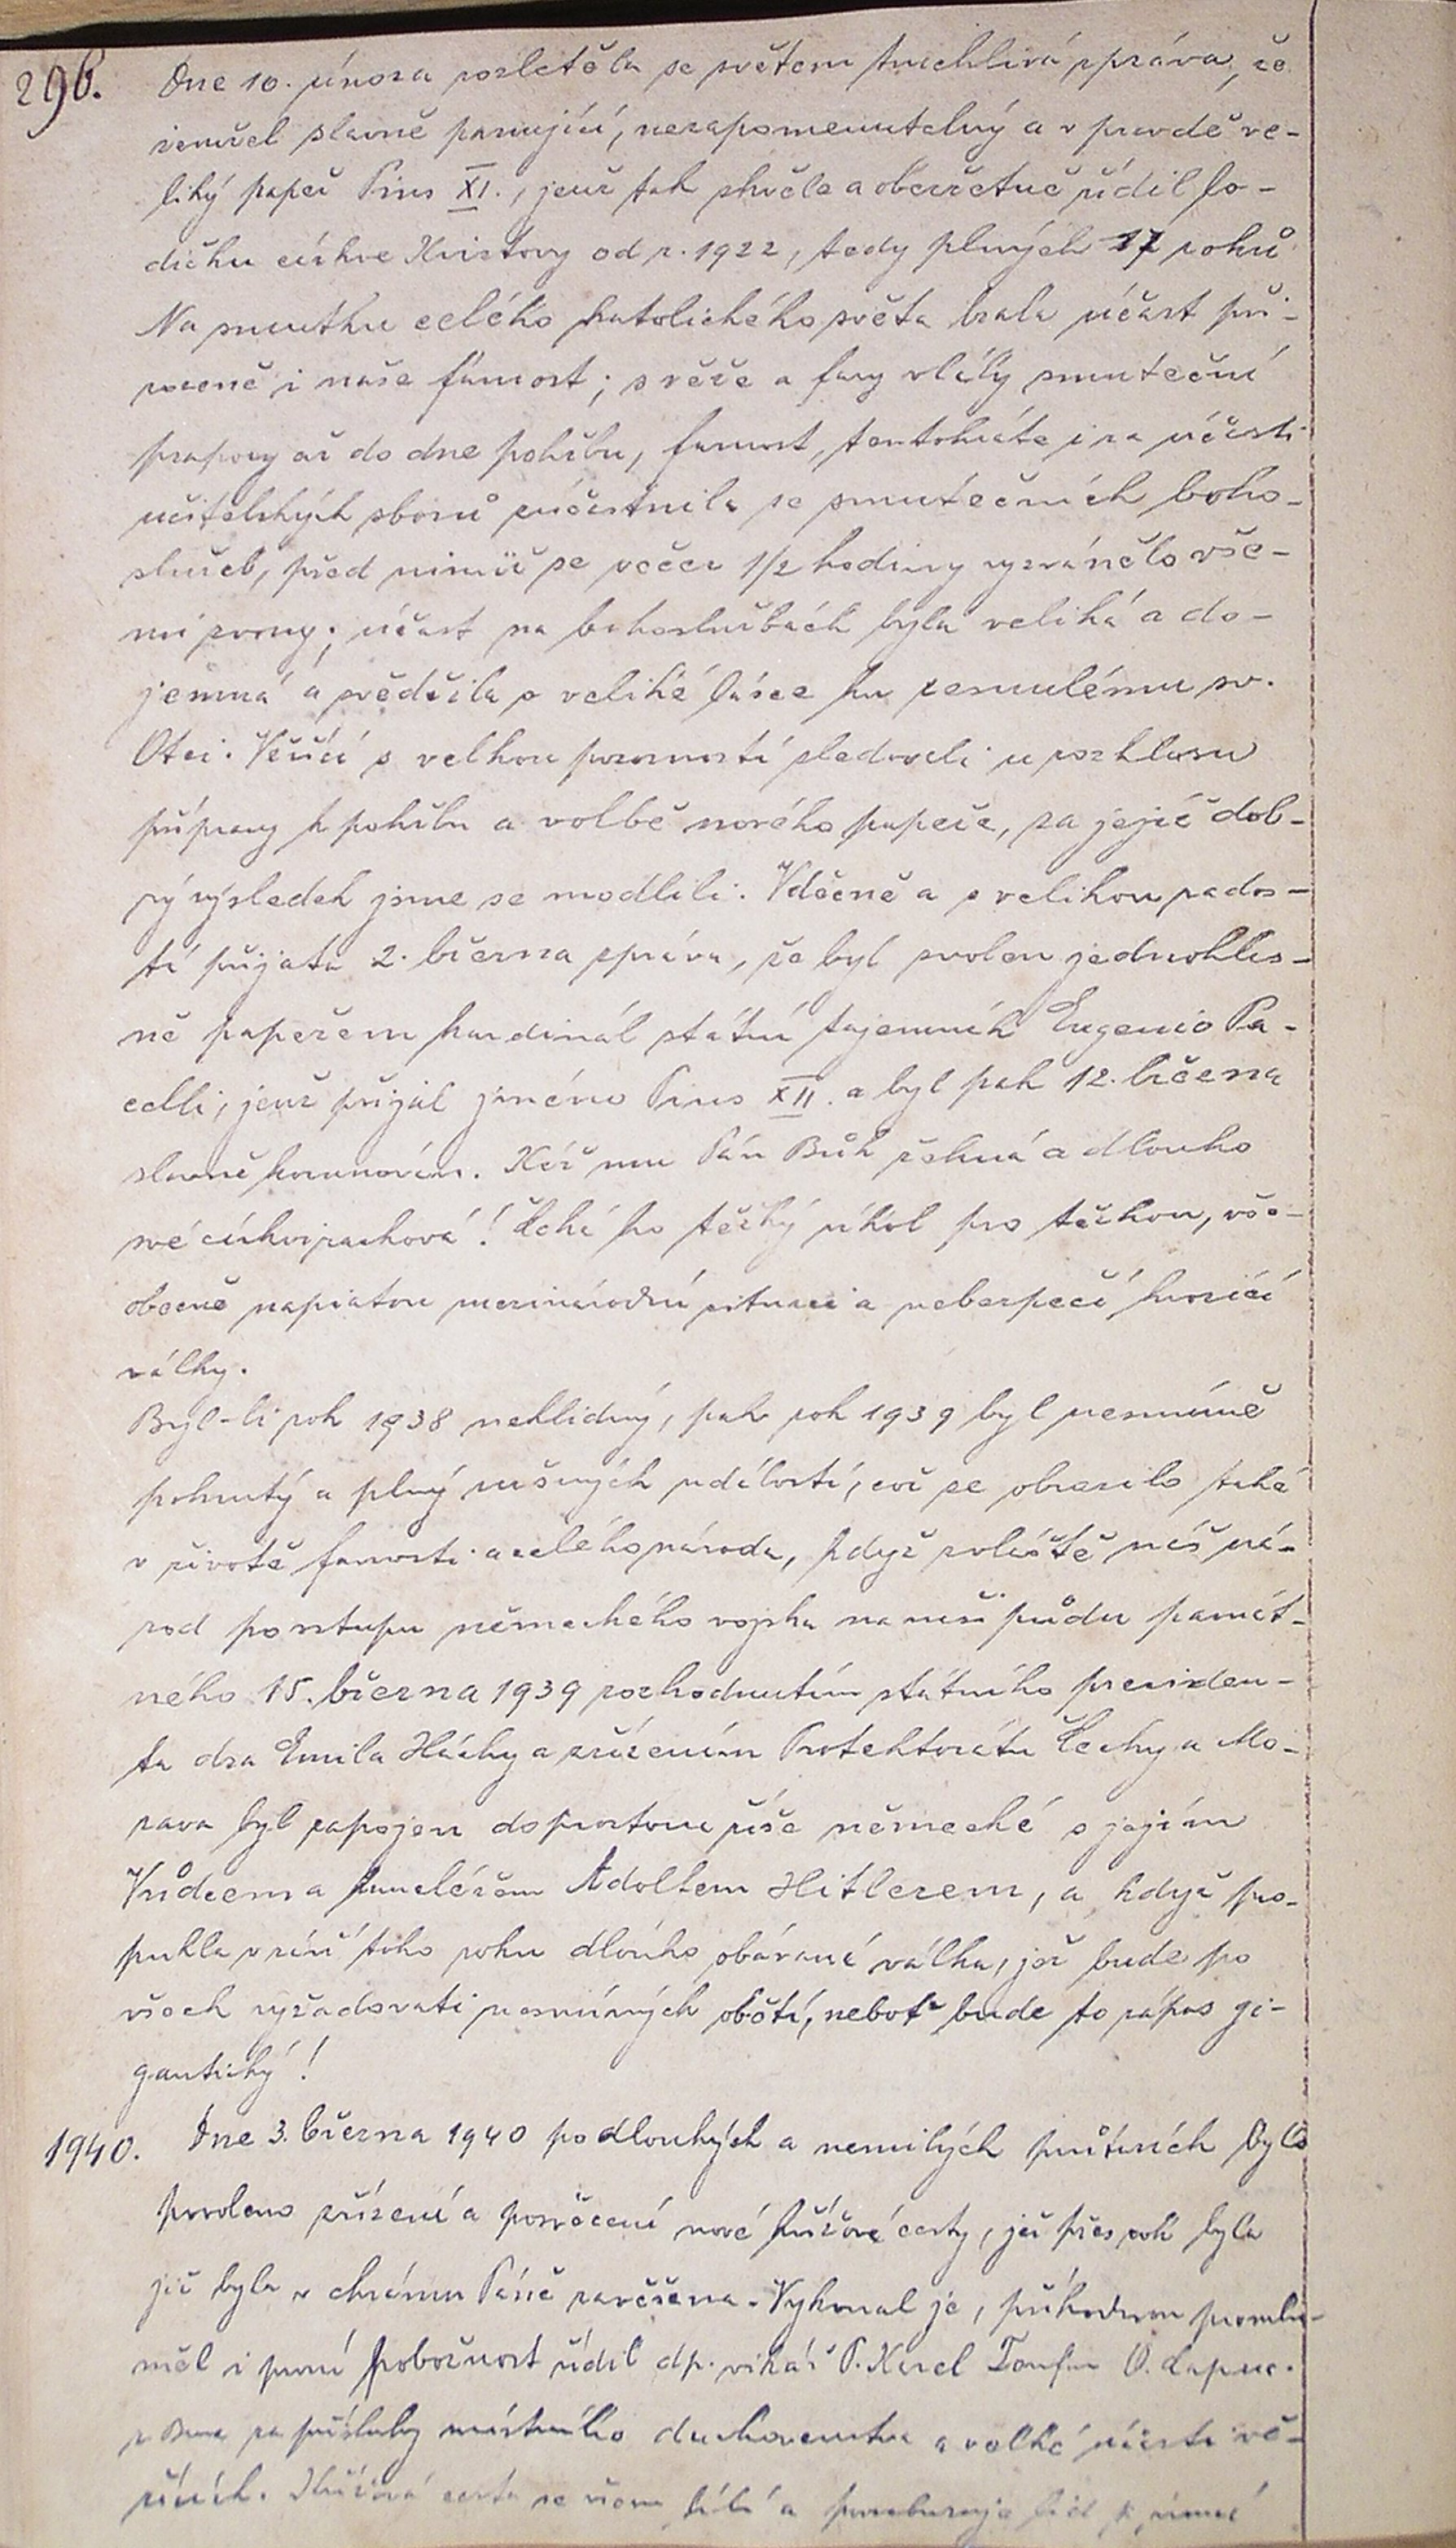 296.
Dne 10. února rozletěla se světem truchlivá zpráva, že
zemřel slavně panující, nezapomenutelný a v pravdě ve-
liký papež Pius XI., jenž tak skvěle a obezřetně řídil lo-
dičku církve Kristovy od r. 1922, tedy plných 17 roků
Na smutku celého katolického světa brala účast při-
rozeně i naše farnost; s věže a fary vlály smuteční
prapory až do dne pohřbu, farnost, tentokráte i za účasti
učitelských sborů zúčastnila se smutečních boho-
služeb, před nimiž se večer 1/2 hodiny vyzvánělo vše-
mi zvony; účast na bohoslužbách byla veliká a do-
jemná a svědčila o veliké lásce ku zesnulému sv.
Otci. Věřící s velkou pozorností sledovali u rozhlasu
přípravy k pohřbu a volbě nového papeže, za jejíž dob-
rý výsledek jsme se modlili. Vděčně a s velikou rados-
tí přijata 2. března zpráva, že byl zvolen jednohlas-
ně papežem kardinál státní tajemník Eugenio Pa-
celli, jenž přijal jméno Pius XII. a byl pak 12. března
slavně korunován. Kéž mu Pán Bůh žehná a dlouho
své církvi zachová! Čeká ho těžký úkol pro těžkou, vše-
obecně napiatou mezinárodní situaci a nebezpečí hrozící
války.
Byl-li rok 1938 neklidný, pak rok 1939 byl nesmírně
pohnutý a plný rušných událostí, což se obrazilo také
v životě farnosti a celého národa, když zvláště náš ná-
rod po vstupu německého vojska na naši půdu památ-
ného 15. března 1939 rozhodnutím státního presiden-
ta dra Emila Háchy a zřízením Protektorátu Čechy a Mo-
rava byl zapojen do prostoru říše německé s jejím
Vůdcem a kancléřem Adolfem Hitlerem, a když pro-
pukla v září toho roku dlouho obávaná válka, jež bude po
všech vyžadovati nesmírných obětí, neboť bude to zápas gi-
gantický!
1940. Dne 3. března 1940 po dlouhých a nemilých průtazích bylo
povoleno zřízení a posvěcení nové křížové cesty, jež přes rok byla
již byla v chrámu Páně zavěšena. Vykonal je, příhodnou promlu-
měl i první pobožnost řídil dp. vikář P. Karel O. Capuc.
z Brna za přísluhy místního duchovenstva a velké účasti vě-
řících. Křížová cesta se všem líbí a povzbuzuje lid k